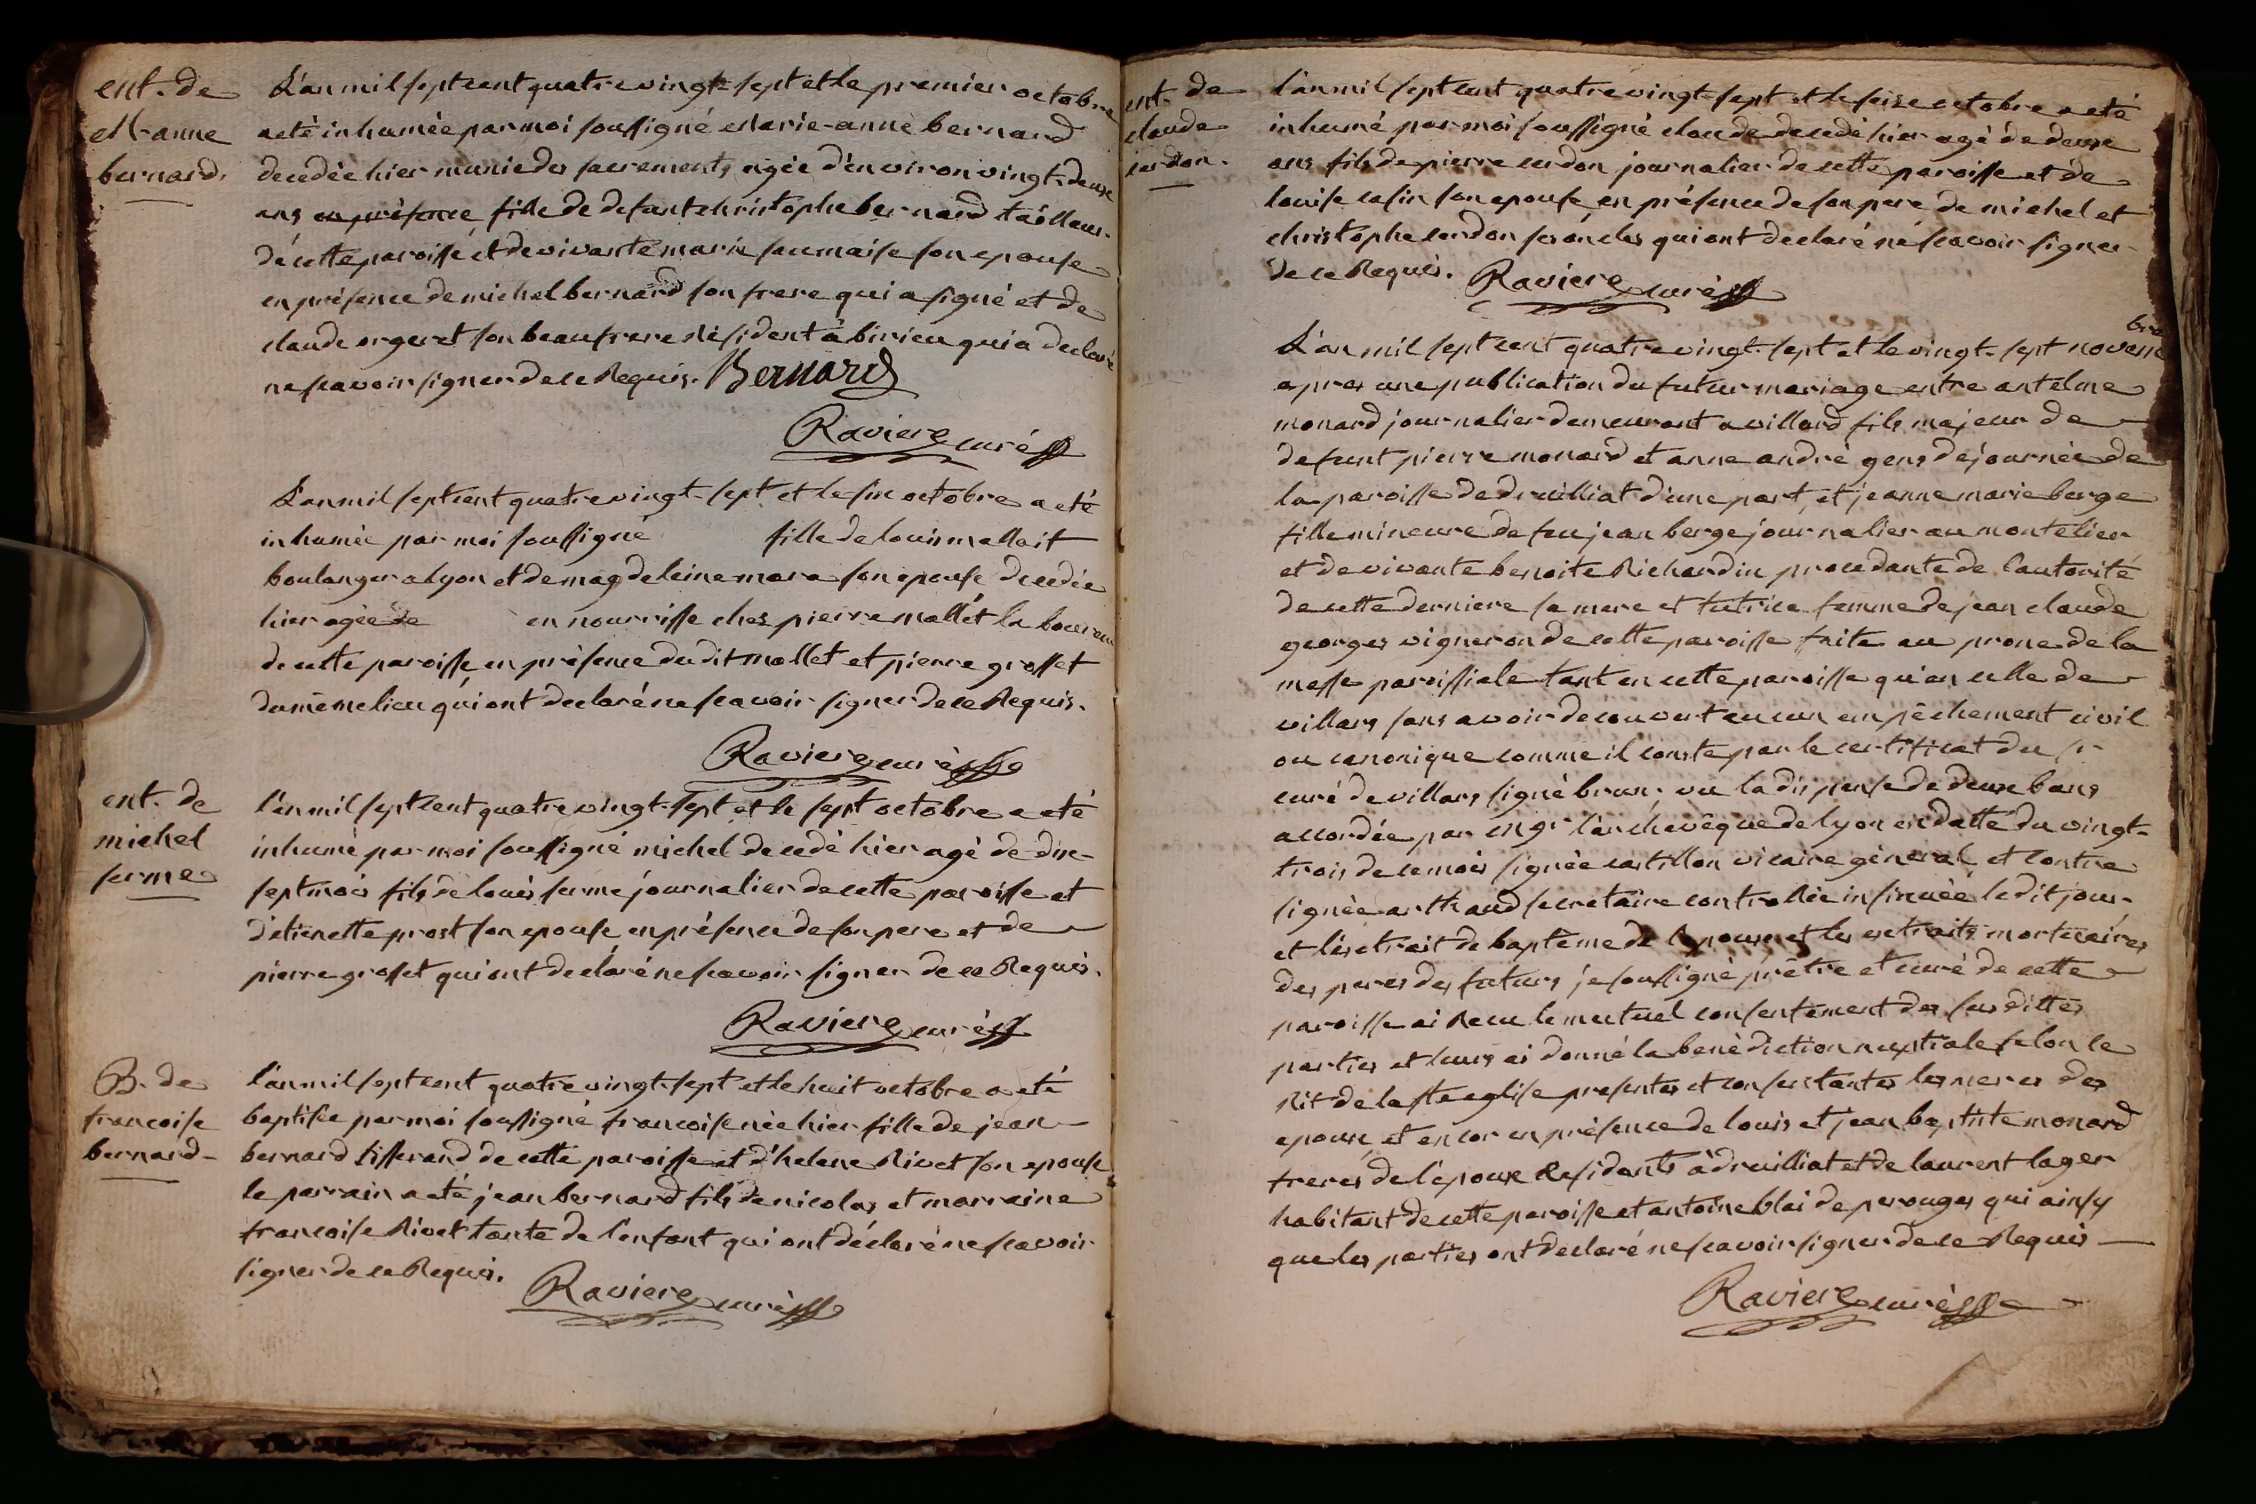 ent. de
M-anne
bernard.
L'an mil sept cent quatre vingt-sept et le premier octobre
a eté inhumée par moi soussigné marie-anne bernard
decedée hier munie des sacrements agée d'environ vingt-deux
ans en présence fille de defunt christophe bernard tailleur
de cette paroisse et de vivante marie saumaise son epouse
en présence de michel bernard son frere qui a signé et de
claude orgeret son beaufrere résident à birieu qui a declaré
ne scavoir signer de ce Requis. Bernard
Raviere curé
L'an mil sept cent quatre vingt-sept et le six octobre a eté
inhumée par moi soussigné fille de louis mallait
boulanger a lyon et de magdeleine mara son epouse decedée
hier agée de en nourrisse chez pierre mallét laboureur
de cette paroisse en présence dudit mallet et pierre grosset
du même lieu qui ont declaré ne scavoir signer de ce Requis.
Raviere curé
ent. de
michel
ferme
l'an mil sept cent quatre vingt-sept et le sept octobre a eté
inhumé par moi soussigné michel decedé hier agé de dix-
sept mois fils de louis ferme journalier de cette paroisse et
d'étienette prost son epouse en présence de son pere et de
pierre grosset qui ont declaré ne scavoir signer de ce Requis.
Raviere curé
B. de
francoise
bernard-
l'an mil sept cent quatre vingt-sept et le huit octobre a eté
baptisée par moi soussigné francoise née hier fille de jean
bernard tisserand de cette paroisse et d'helene Rivet son epouse
le parrain a eté jean bernard fils de nicolas et marraine
francoise Rivet tante de l'enfant qui ont déclaré ne scavoir
signer de ce Requis.
Raviere curé
ent. de
claude
cerdon.
l'an mil sept cent quatre vingt-sept et le seize octobre a eté
inhumé par moi soussigné claude decedé hier agé de deux
ans fils de pierre cerdon journalier de cette paroisse et de
louise cosin son epouse en présence de son pere de michel et
christophe cerdon ses oncles qui ont declaré ne scavoir signer
de ce Requis. Raviere curé
L'an mil sept cent quatre vingt-sept et le vingt-sept novembre
apres une publication du futur mariage entre antelme
monard journalier demeurant a villard fils majeur de
defunt pierre monard et anne andré gens de journée de
la paroisse de druilliat d'une part, et jeanne marie berge
fille mineure de feu jean berge journalier au montelier
et de vivante benoite Richardin procedante de l'autorité
de cette derniere sa mere et tutrice femme de jean claude
georges vigneron de cette paroisse faite au prone de la
messe paroissiale tant en cette paroisse qu'en celle de
villars sans avoir decouvert aucun empêchement civil
ou canonique comme il conste par le certificat du sr
curé de villars signé brun. vu la dispense de deux bans
accordée par mgr l'archevêque de lyon en datte du vingt-
trois de ce mois signée castillon vicaire général et contre
signée arthaud secretaire controllée insinuée ledit jour.
et l'extrait de baptême de l'epouse et les extraits mortuaires
des peres des futurs je soussigné prêtre et curé de cette
paroisse ai Recu le mutuel consentement des susdittes
parties et leurs ai donné la benédiction nuptiale selon le
Rit de la ste eglise presentes et consentantes les meres des
epoux, et encor en présence de louis et jean baptiste monard
freres de l'époux Residents à druilliat et de laurent lager
habitant de cette paroisse et antoine blai de perouges qui ainsy
que les parties ont declaré ne scavoir signer de ce Requis
Raviere curé